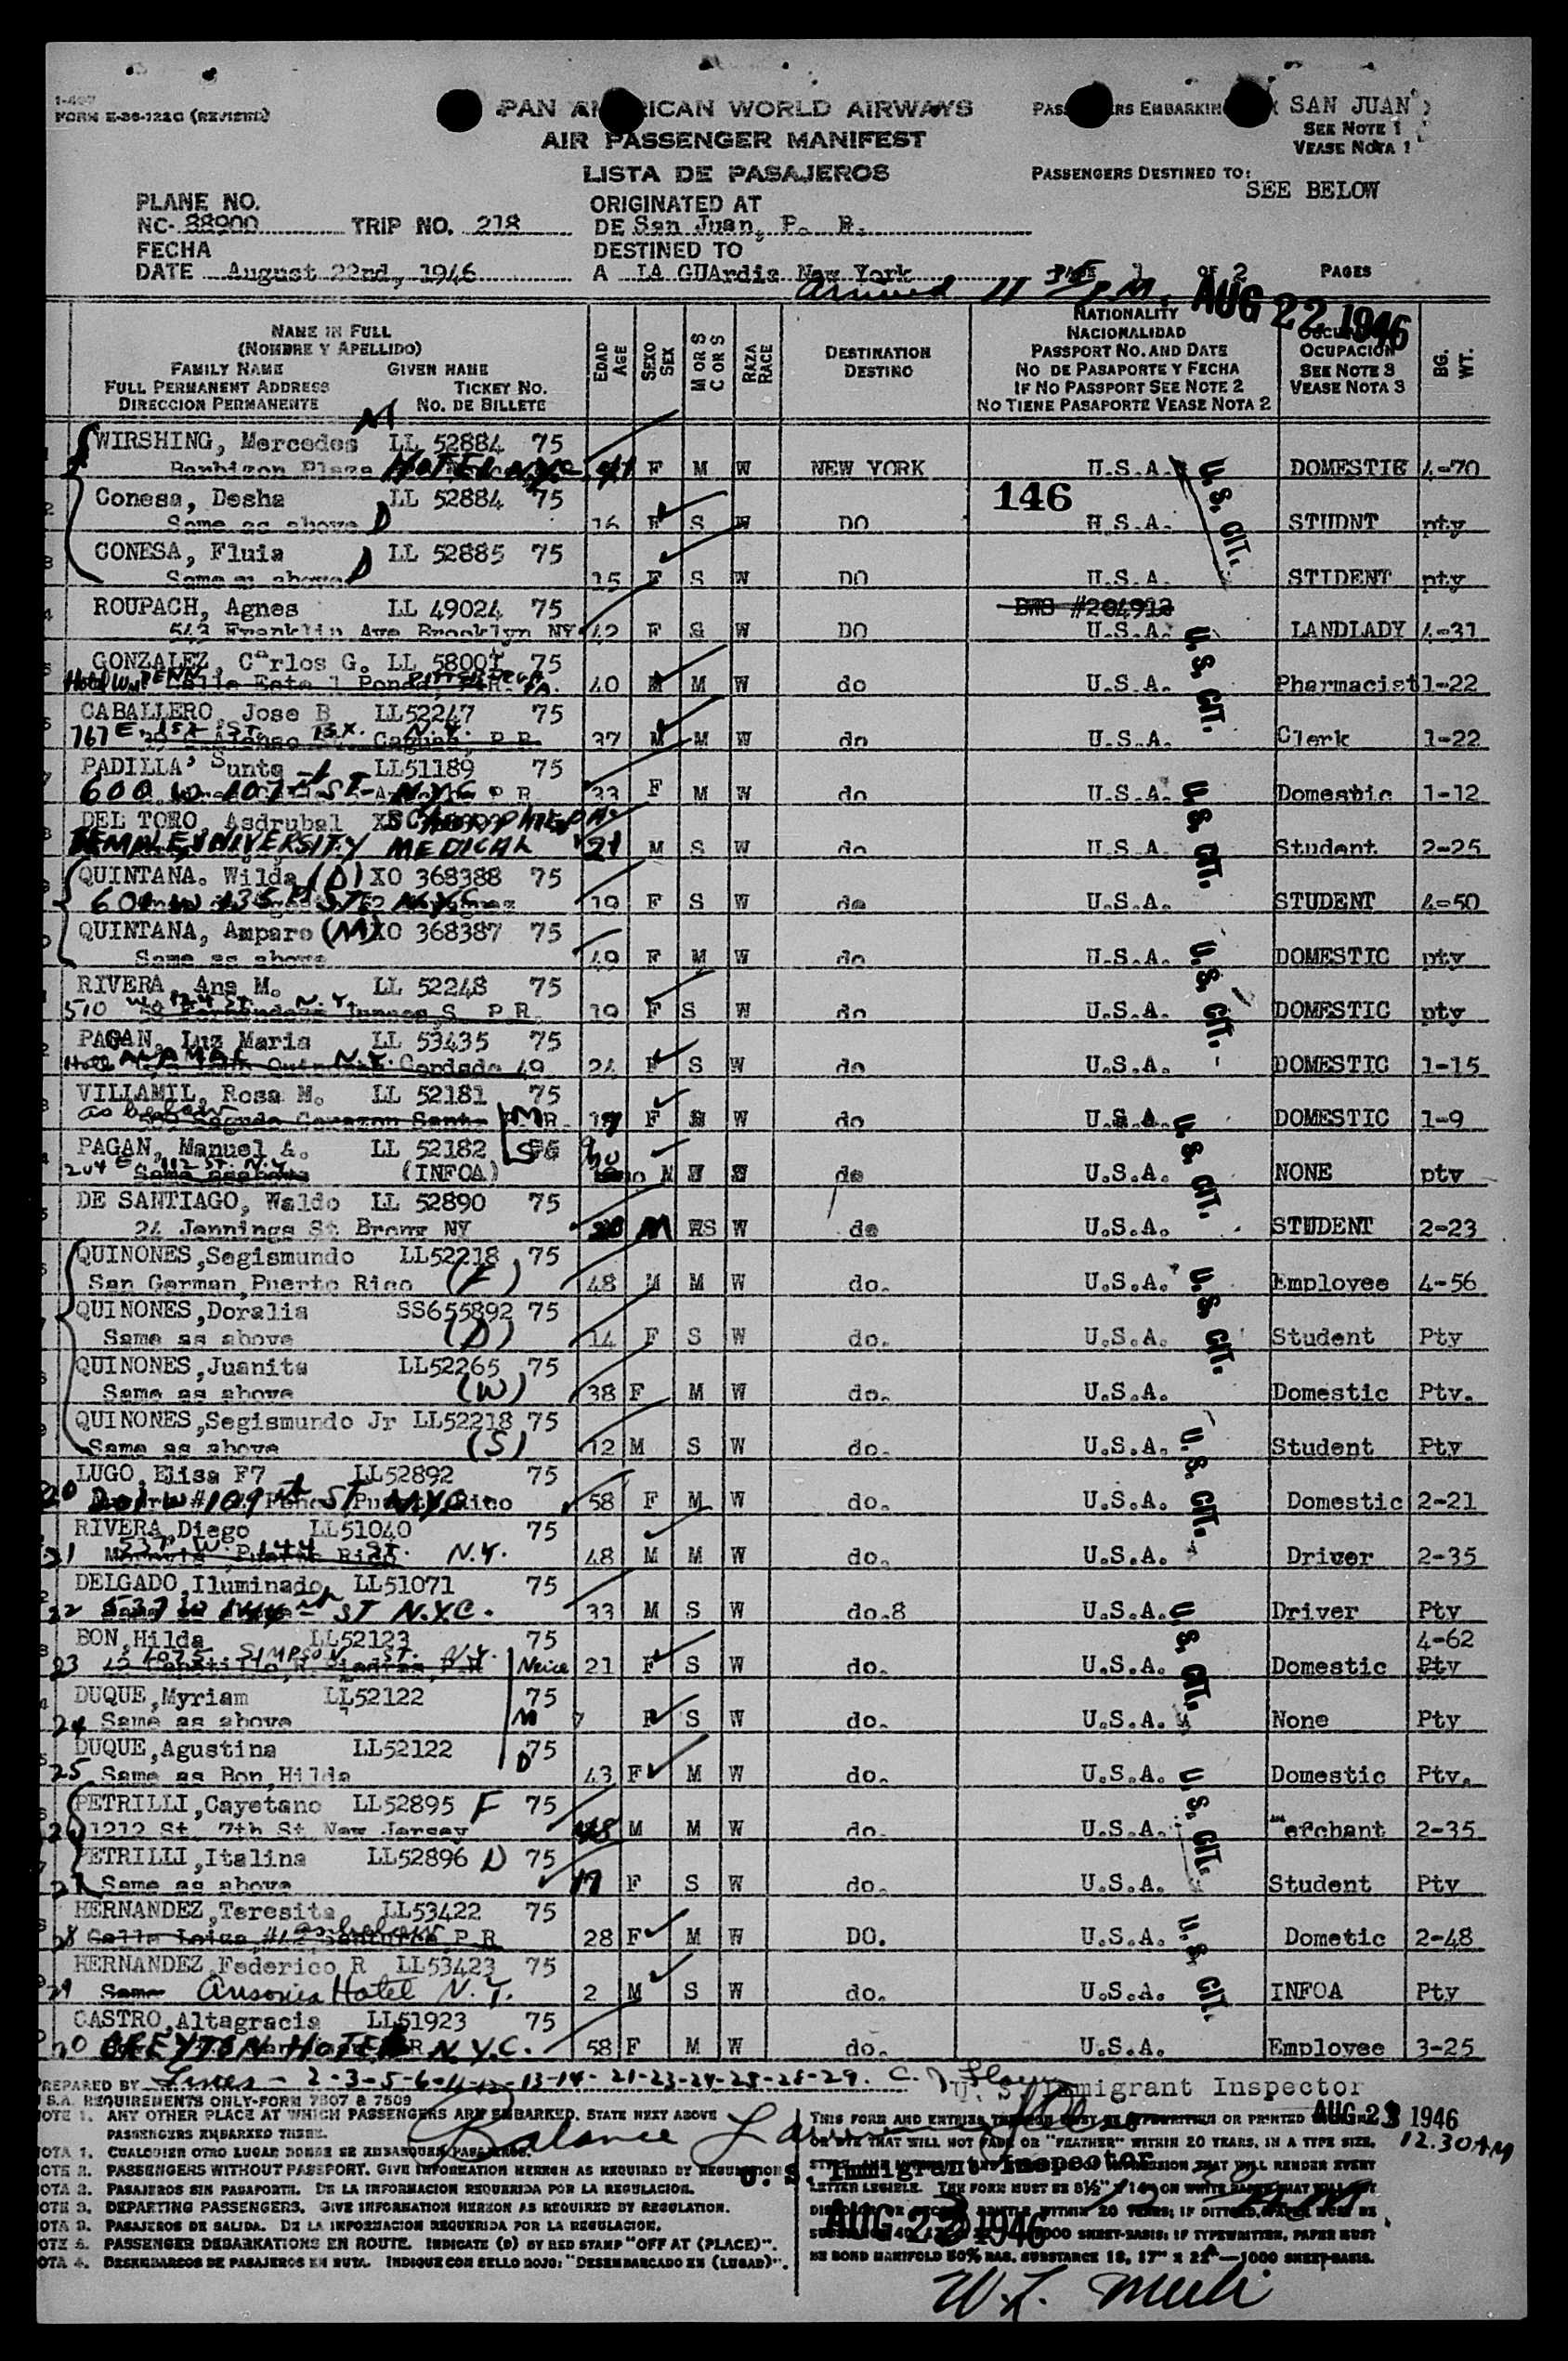 FORM E-36-122C (REVISED)
PAN AMERICAN WORLD AIRWAYS
AIR PASSENGER MANIFEST
LISTA DE PASAJEROS
SAN JUAN
SEE NOTE 1
VEASE NOTA 1
PASSENGERS DESTINED TO:
SEE BELOW
PLANE NO.
NC- 88900 TRIP NO. 218
FECHA
DATE August 22nd, 1946
ORIGINATED AT
DE San Juan, P. R.
DESTINED TO
A LA GUArdia New York
1 OF 2 PAGES
Arrived 11 35 P.M. AUG 22 1946
NAME IN FULL
(NOMBRE Y APELLIDO)
FAMILY NAME GIVEN NAME
FULL PERMANENT ADDRESS TICKET NO.
DIRECCION PERMANENTE NO. DE BILLETE
EDAD AGE
SEXO SEX
M OR S
C OR S
RAZA RACE
DESTINATION
DESTINO
NATIONALITY
NACIONALIDAD
PASSPORT NO. AND DATE
NO DE PASAPORTE Y FECHA
IF NO PASSPORT SEE NOTE 2
NO TIENE PASAPORTE VEASE NOTA 2
OCUPACION
SEE NOTE 3
VEASE NOTA 3
BG. WT.
WIRSHING, Mercedes M LL 52884 75
Barbizon Plaza HOTEL NYC 41 F M W NEW YORK U.S.A. DOMESTIC 4-70
Conesa, Desha LL 52884 75 146
Same as above D 16 F S W DO U.S.A. U.S. CIT. STUDNT pty
CONESA, Fluia LL 52885 75
Same as above D 15 F S W DO U.S.A. STIDENT pty
ROUPACH, Agnes LL 49024 75
543 Franklin Ave Brooklyn NY 42 F S W DO U.S.A. LANDLADY 4-31
GONZALEZ, Carlos G. LL 58001 75
40 M M W do U.S.A. U.S. CIT. Pharmacist 1-22
CABALLERO, Jose B LL52247 75
767 E. 152 ST. BX. N.Y. 37 M M W do U.S.A. Clerk 1-22
PADILLA, Sunta LL51189 75
600 W 107 ST N.Y.C 33 F M W do U.S.A. Domestic 1-12
DEL TORO, Asdrubal
TEMPLE UNIVERSITY MEDICAL 21 M S W do U.S.A. U.S. CIT. Student 2-25
QUINTANA. Wilda (D) XO 368388 75
601 W 135 ST N.Y.C 19 F S W do U.S.A. STUDENT 4-50
QUINTANA, Amparo (M) XO 368387 75
Same as above 49 F M W do U.S.A. DOMESTIC pty
RIVERA, Ana M. LL 52248 75
510 W. 124 ST. N.Y. 19 F S W do U.S.A. U.S. CIT. DOMESTIC pty
PAGAN, Luz Maria LL 53435 75
24 F S W do U.S.A. DOMESTIC 1-15
VILLAMIL, Rosa M. LL 52181 75
as below M F W do U.S.A. DOMESTIC 1-9
PAGAN, Manuel A. LL 52182
204 E. 112 ST. N.Y. (INFOA) S do U.S.A. U.S. CIT. NONE pty
DE SANTIAGO, Waldo LL 52890 75
24 Jennings St Bronx NY M W do U.S.A. STUDENT 2-23
QUINONES,Segismundo LL52218 75
San German,Puerto Rico (F) 48 M M W do. U.S.A. Employee 4-56
QUINONES,Doralia SS655892 75
Same as above (D) 14 F S W do. U.S.A. U.S. CIT. Student Pty
QUINONES,Juanita LL52265 75
Same as above (W) 38 F M W do. U.S.A. Domestic Pty.
QUINONES,Segismundo Jr LL52218 75
Same as above (S) 12 M S W do. U.S.A. Student Pty
LUGO,Elisa F7 LL52892 75
20 201 W #109th ST N.Y.C. 58 F M W do. U.S.A. U.S. CIT. Domestic 2-21
RIVERA,Diego LL51040 75
537 W. 144 ST. N.Y. 48 M M W do. U.S.A. Driver 2-35
DELGADO,Iluminado LL51071 75
537 W 144 ST N.Y.C. 33 M S W do.8 U.S.A. Driver Pty
BON,Hilda LL52123 75 4-62
23 1075 SIMPSON ST. N.Y. Neice 21 F S W do. U.S.A. U.S. CIT. Domestic Pty
DUQUE,Myriam LL52122 75
24 Same as above M 7 F S W do. U.S.A. None Pty
DUQUE,Agustina LL52122 75
25 Same as Bon,Hilda D 43 F M W do. U.S.A. Domestic Pty.
PETRILLI,Cayetano LL52895 F 75
1212 St. 7th St New Jersey 48 M M W do. U.S.A. U.S. CIT. erchant 2-35
PETRILLI,Italina LL52896 D 75
27 Same as above 17 F S W do. U.S.A. Student Pty
HERNANDEZ,Teresita LL53422 75
Calle Loiza,#42,Santurce,P.R as below 28 F M W DO. U.S.A. Dometic 2-48
HERNANDEZ,Federico R LL53423 75
29 Same Ansonia Hotel N.Y. 2 M S W do. U.S.A. U.S. CIT. INFOA Pty
CASTRO,Altagracia LL51923 75
GREYTON HOTEL N.Y.C. 58 F M W do. U.S.A. Employee 3-25
PREPARED BY Lines - 2-3-5-6-11-12-13-14-21-23-24-25-28-29.
U. S. Immigrant Inspector
S.A. REQUIREMENTS ONLY-FORM 7507 & 7509
NOTE 1. ANY OTHER PLACE AT WHICH PASSENGERS ARE EMBARKED. STATE NEXT ABOVE
PASSENGERS EMBARKED THERE.
NOTA 1. CUALQUIER OTRO LUGAR DONDE SE EMBARQUEN PASAJEROS.
NOTE 2. PASSENGERS WITHOUT PASSPORT. GIVE INFORMATION HEREON AS REQUIRED BY REGULATION
NOTA 2. PASAJEROS SIN PASAPORTE. DE LA INFORMACION REQUERIDA POR LA REGULACION.
NOTE 3. DEPARTING PASSENGERS. GIVE INFORMATION HEREON AS REQUIRED BY REGULATION.
NOTA 3. PASAJEROS DE SALIDA. DE LA INFORMACION REQUERIDA POR LA REGULACION.
NOTE 4. PASSENGER DEBARKATIONS EN ROUTE. INDICATE (D) BY RED STAMP "OFF AT (PLACE)".
NOTA 4. DESEMBARCOS DE PASAJEROS EN RUTA. INDIQUE CON SELLO ROJO: "DESEMBARCADO EN (LUGAD)".
Balance
AUG 23 1946
12.30 AM
THIS FORM AND ENTRIES THEREON MUST BE TYPEWRITTEN OR PRINTED
OR DYE THAT WILL NOT FADE OR "FEATHER" WITHIN 20 YEARS, IN A TYPE SIZE,
U. S. Immigrant Inspector
LETTER LEGIBLE. THE FORM MUST BE 8½" X 14" ON WHITE PAPER THAT WILL NOT
AUG 23 1946
1000 SHEET-BASIS; IF TYPEWRITTEN, PAPER MUST
BE BOND MANIFOLD 50% RAG. SUBSTANCE 18, 17" X 22"—1000 SHEET-BASIS.